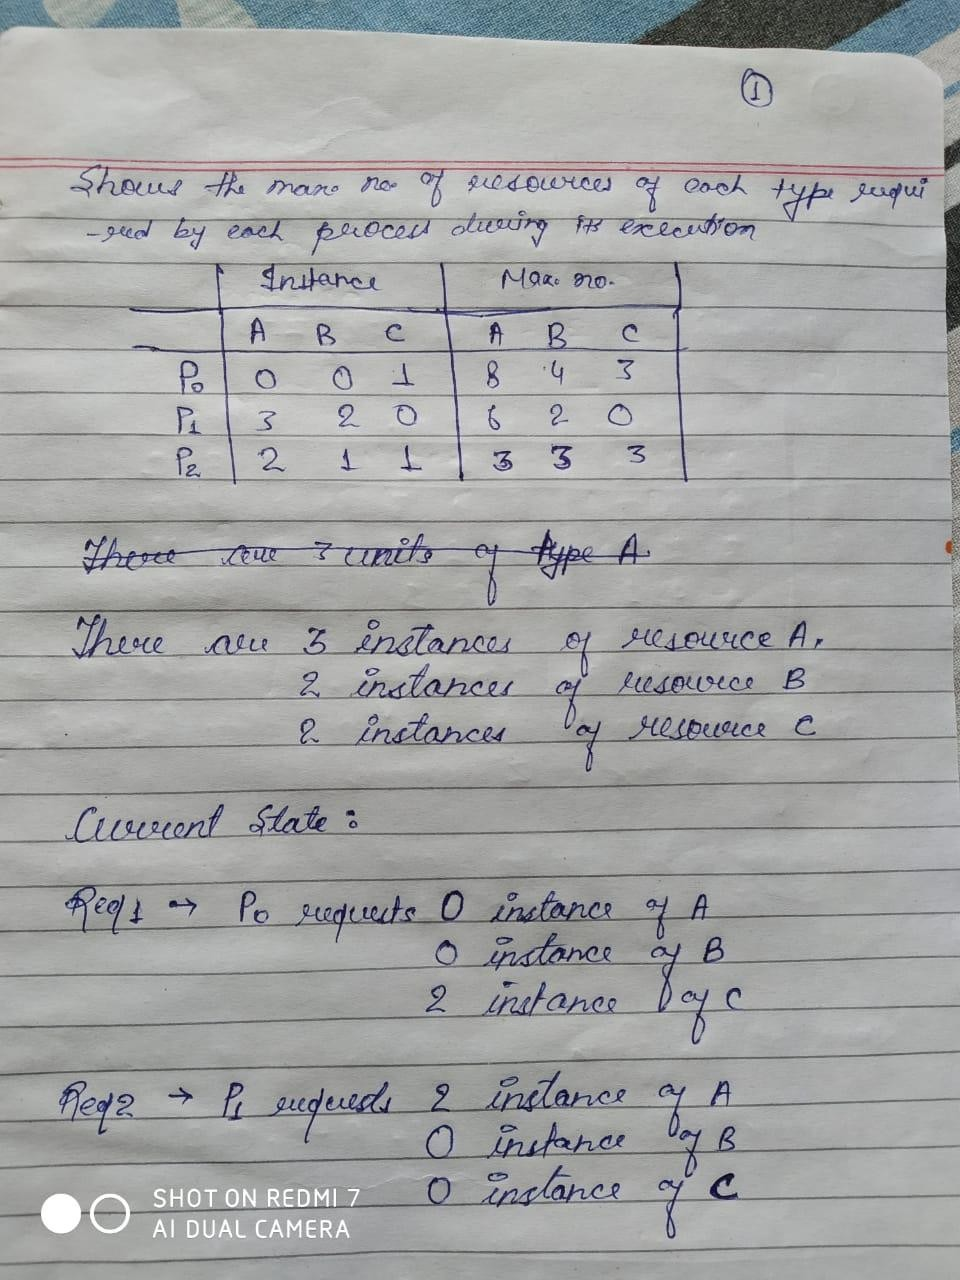 1
Shows the max no of resources of each type requi
-red by each process during its execution
Instance Max. no.
A B C A B C
P0 0 0 1 8 4 3
P1 3 2 0 6 2 0
P2 2 1 1 3 3 3
There are 3 units of type A.
There are 3 instances of resource A,
2 instances of resource B
2 instances of resource C
Current State :
Req1 → P0 requests 0 instance of A
0 instance of B
2 instance of C
Req2 → P1 requests 2 instance of A
0 instance of B
0 instance of C
SHOT ON REDMI 7
AI DUAL CAMERA